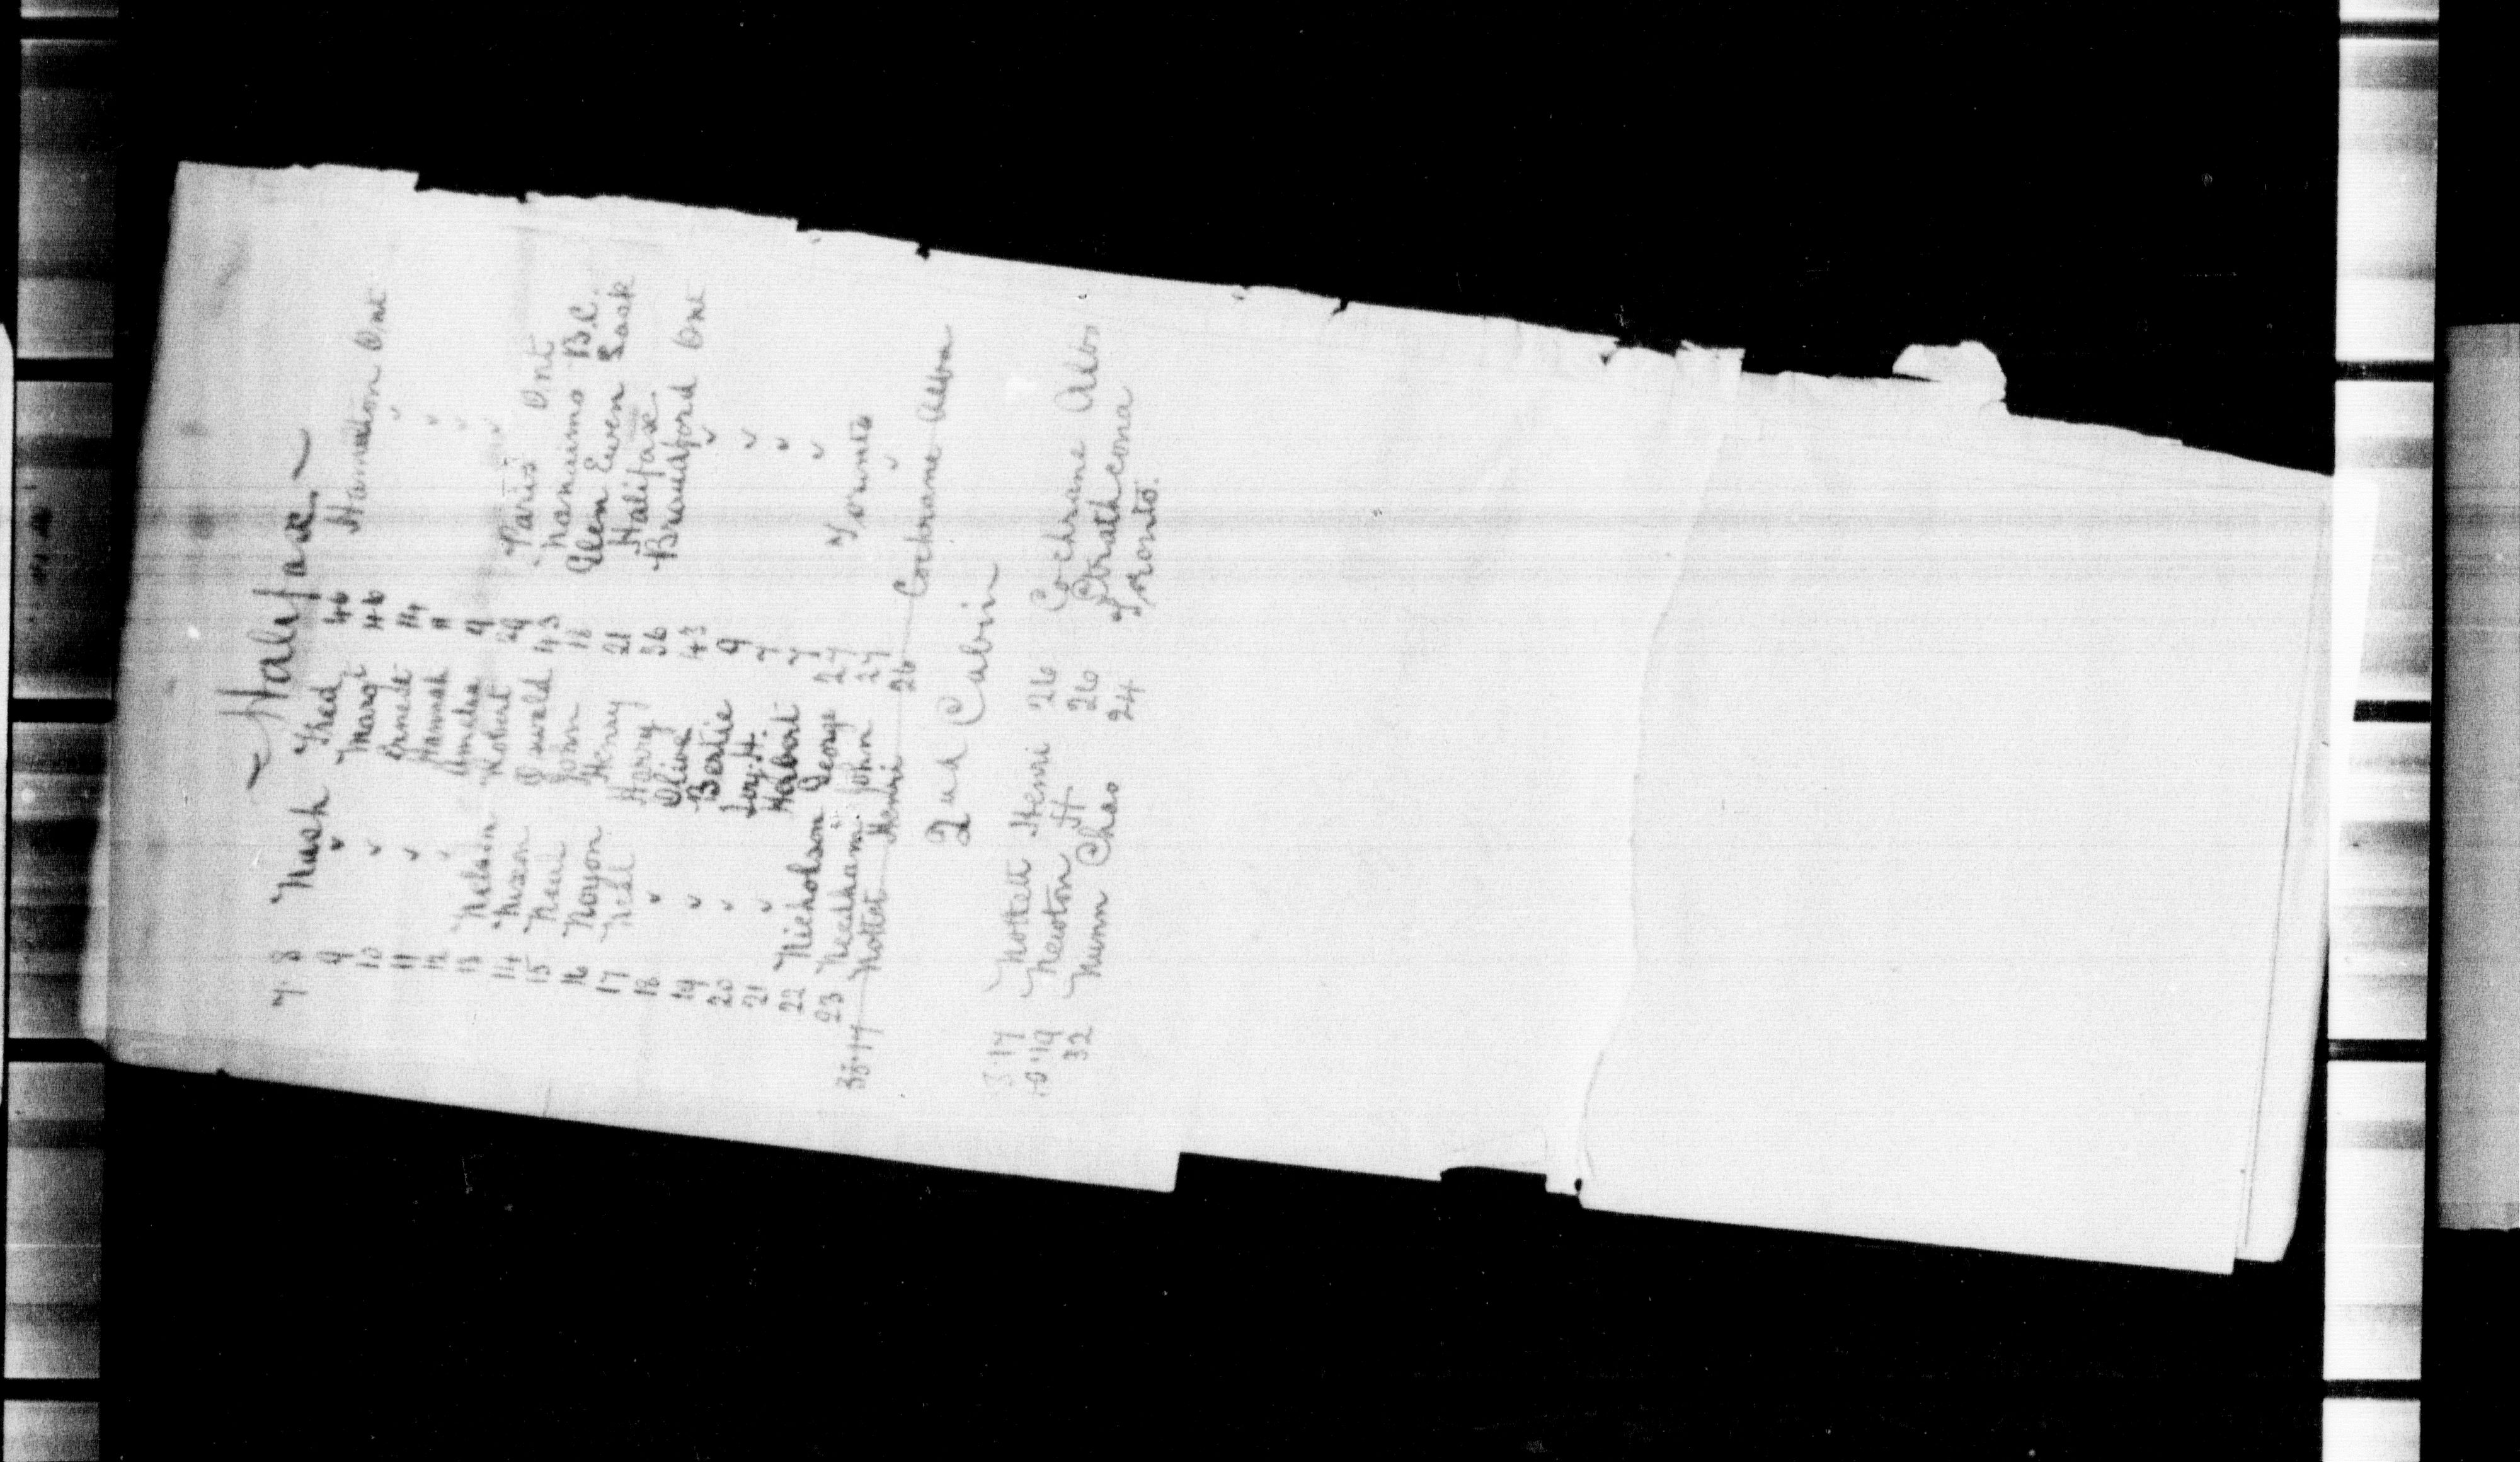 ~ Halifax ~
7. 8 Nash Fred 46 Hamilton Ont
9 ✓ Margt 46 ✓
10 ✓ Ernest 14 ✓
11 ✓ Hannah 11 ✓
12 ✓ Amelia 9 ✓
13 Nelson Robert 29 Paris Ont
14 Nixon Oswald 43 Nanaimo B.C.
15 Neal John 18 Glen Ewen Sask
16 Noyon Henry 21 Halifax
17 Neal Harry 36 Brandford Ont
18 ✓ Olive 43 ✓
19 ✓ Bertie 9 ✓
20 ✓ Ivy. H. 7 ✓
21 ✓ Herbert 7 ✓
22 Nicholson George 27 Toronto
23 Needham John 27 ✓
38.17 Nottet Henri 26 Cochrane Alba
2nd Cabin
3.17 Nottett Henri 26 Cochrane Alb
10.19 Newton H 26 Strathcona
32 Nunn Chas 24 Toronto.